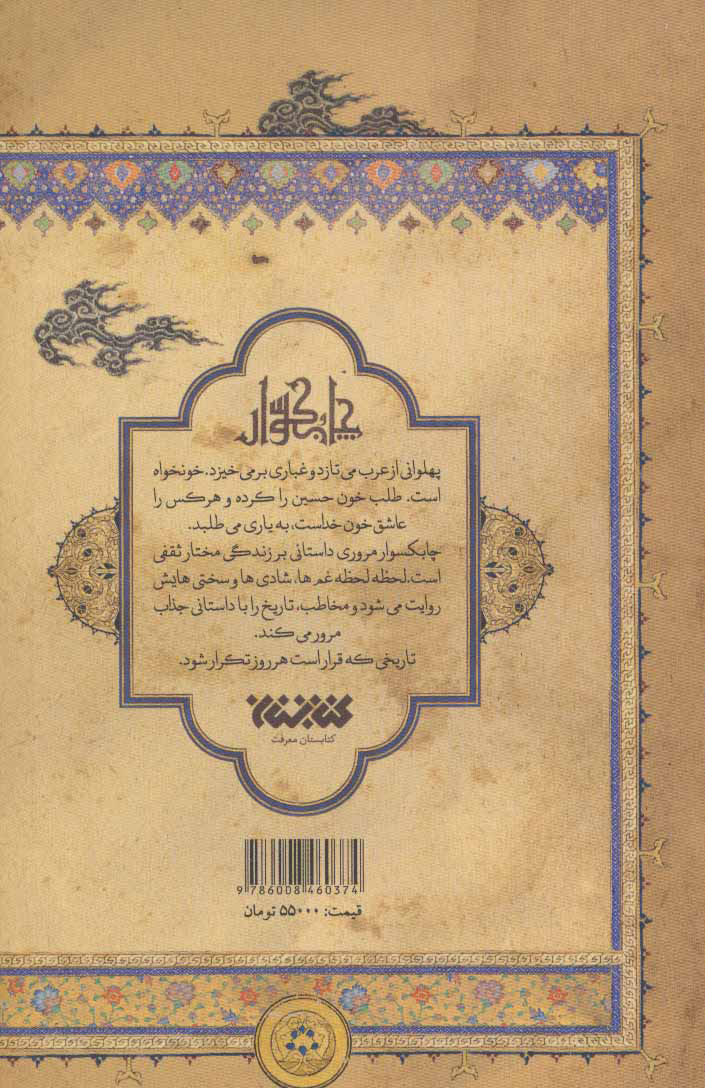 چابکسوار
پهلوانی از عرب می تازد و غباری بر می خیزد. خونخواه
است. طلب خون حسین را کرده و هرکس را
عاشق خون خداست، به یاری می طلبد.
چابکسوار مروری داستانی بر زندگی مختار ثقفی
است. لحظه لحظه غم ها، شادی ها و سختی هایش
روایت می شود و مخاطب، تاریخ را با داستانی جذاب
مرور می کند.
تاریخی که قرار است هر روز تکرار شود.
کتابستان
کتابستان معرفت
9 786008 460374
قیمت: ۵۵۰۰۰ تومان